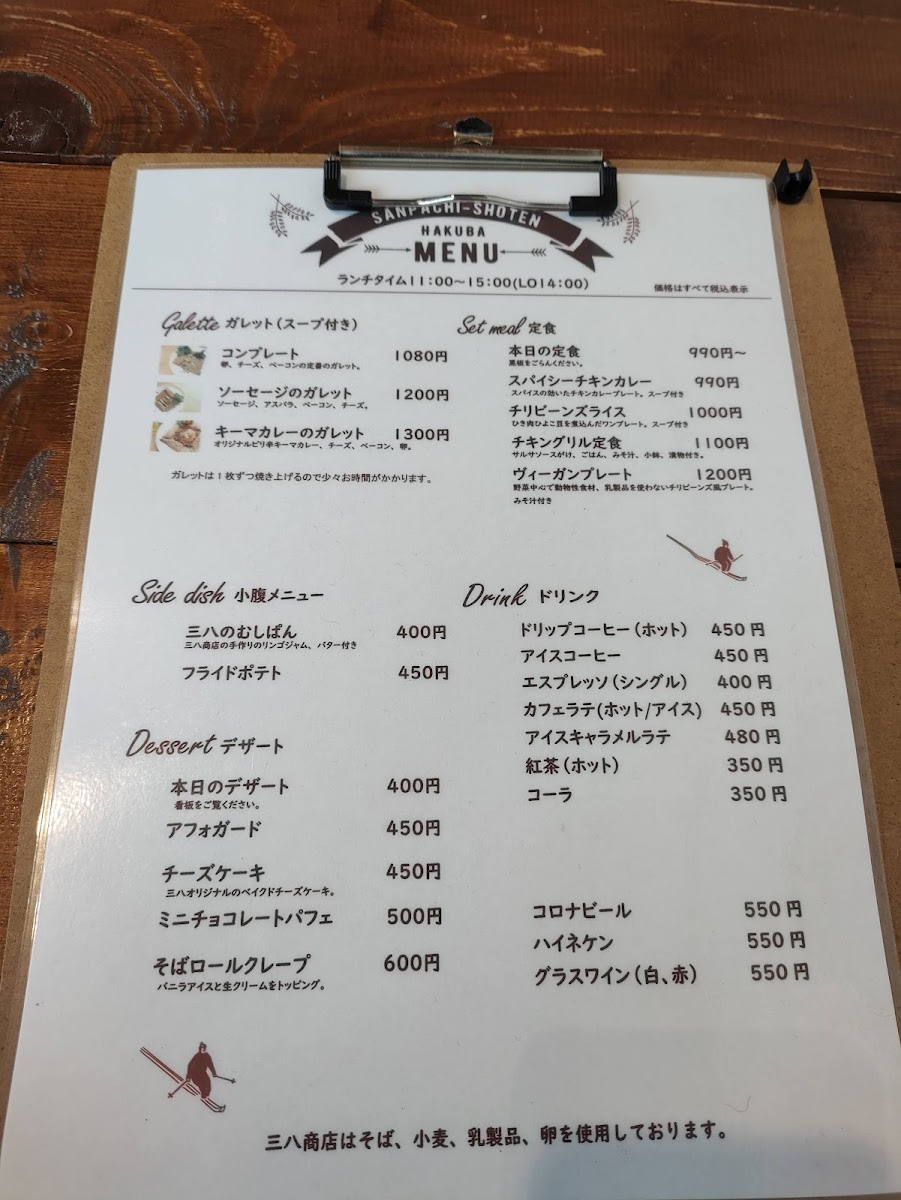 SANPACHI-SHOTEN
HAKUBA
MENU
ランチタイム11:00～15:00(LO14:00)
価格はすべて税込表示
Galette ガレット(スープ付き)
コンプレート 1080円
卵、チーズ、ベーコンの定番のガレット。
ソーセージのガレット 1200円
ソーセージ、アスパラ、ベーコン、チーズ。
キーマカレーのガレット 1300円
オリジナルピリ辛キーマカレー、チーズ、ベーコン、卵。
ガレットは1枚ずつ焼き上げるので少々お時間がかかります。
Set meal 定食
本日の定食 990円～
黒板をごらんください。
スパイシーチキンカレー 990円
スパイスの効いたチキンカレープレート。スープ付き
チリビーンズライス 1000円
ひき肉ひよこ豆を煮込んだワンプレート。スープ付き
チキングリル定食 1100円
サルサソースがけ、ごはん、みそ汁、小鉢、漬物付き。
ヴィーガンプレート 1200円
野菜中心で動物性食材、乳製品を使わないチリビーンズ風プレート。
みそ汁付き
Side dish 小腹メニュー
三八のむしぱん 400円
三八商店の手作りのリンゴジャム、バター付き
フライドポテト 450円
Dessert デザート
本日のデザート 400円
看板をご覧ください。
アフォガード 450円
チーズケーキ 450円
三八オリジナルのベイクドチーズケーキ。
ミニチョコレートパフェ 500円
そばロールクレープ 600円
バニラアイスと生クリームをトッピング。
Drink ドリンク
ドリップコーヒー(ホット) 450円
アイスコーヒー 450円
エスプレッソ(シングル) 400円
カフェラテ(ホット/アイス) 450円
アイスキャラメルラテ 480円
紅茶(ホット) 350円
コーラ 350円
コロナビール 550円
ハイネケン 550円
グラスワイン(白、赤) 550円
三八商店はそば、小麦、乳製品、卵を使用しております。